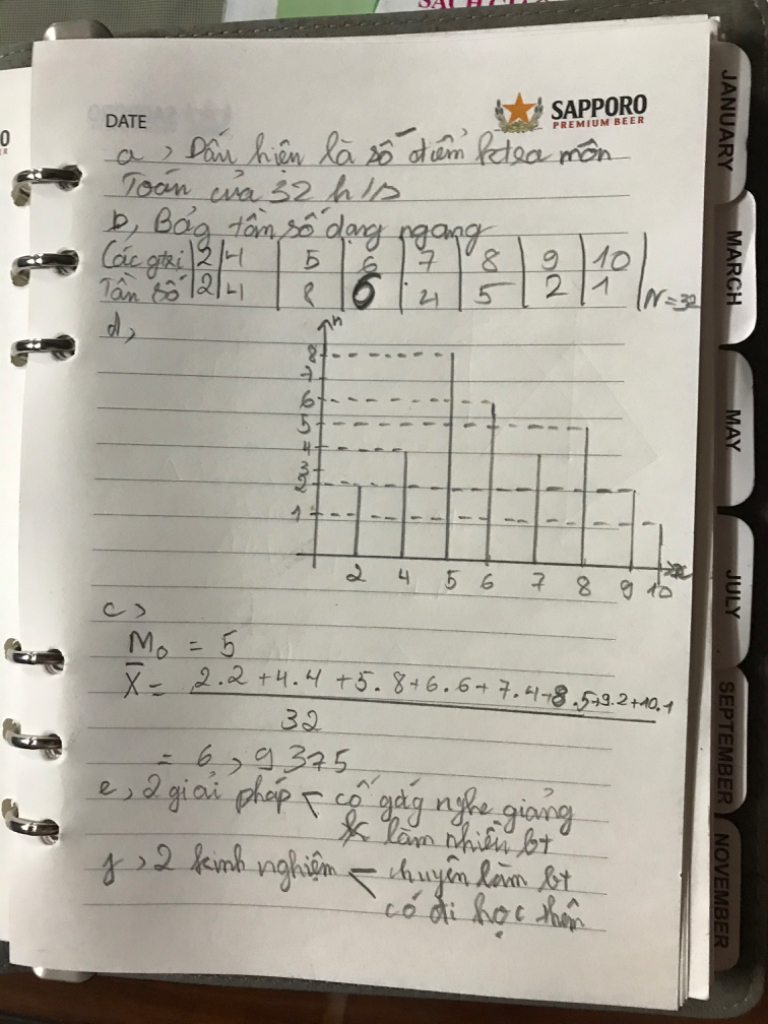 SÁCH
DATE
SAPPORO
PREMIUM BEER
a, Dấu hiện là số điểm ktra môn
Toán của 32 h/s
b, Bảg tần số dạng ngang
Các gtrị | 2 | 4 | 5 | 6 | 7 | 8 | 9 | 10
Tần số | 2 | 4 | 8 | 6 | 4 | 5 | 2 | 1 | N = 32
d,
n
8
7
6
5
4
3
2
1
2 4 5 6 7 8 9 10 x
c,
M₀ = 5
X̄ = 2.2 + 4.4 + 5.8 + 6.6 + 7.4 + 8.5 + 9.2 + 10.1
32
= 6,9375
e, 2 giải pháp - cố gắg nghe giảng
làm nhiều bt
f, 2 kinh nghiệm - chuyên làm bt
có đi học thêm
JANUARY
MARCH
MAY
JULY
SEPTEMBER
NOVEMBER